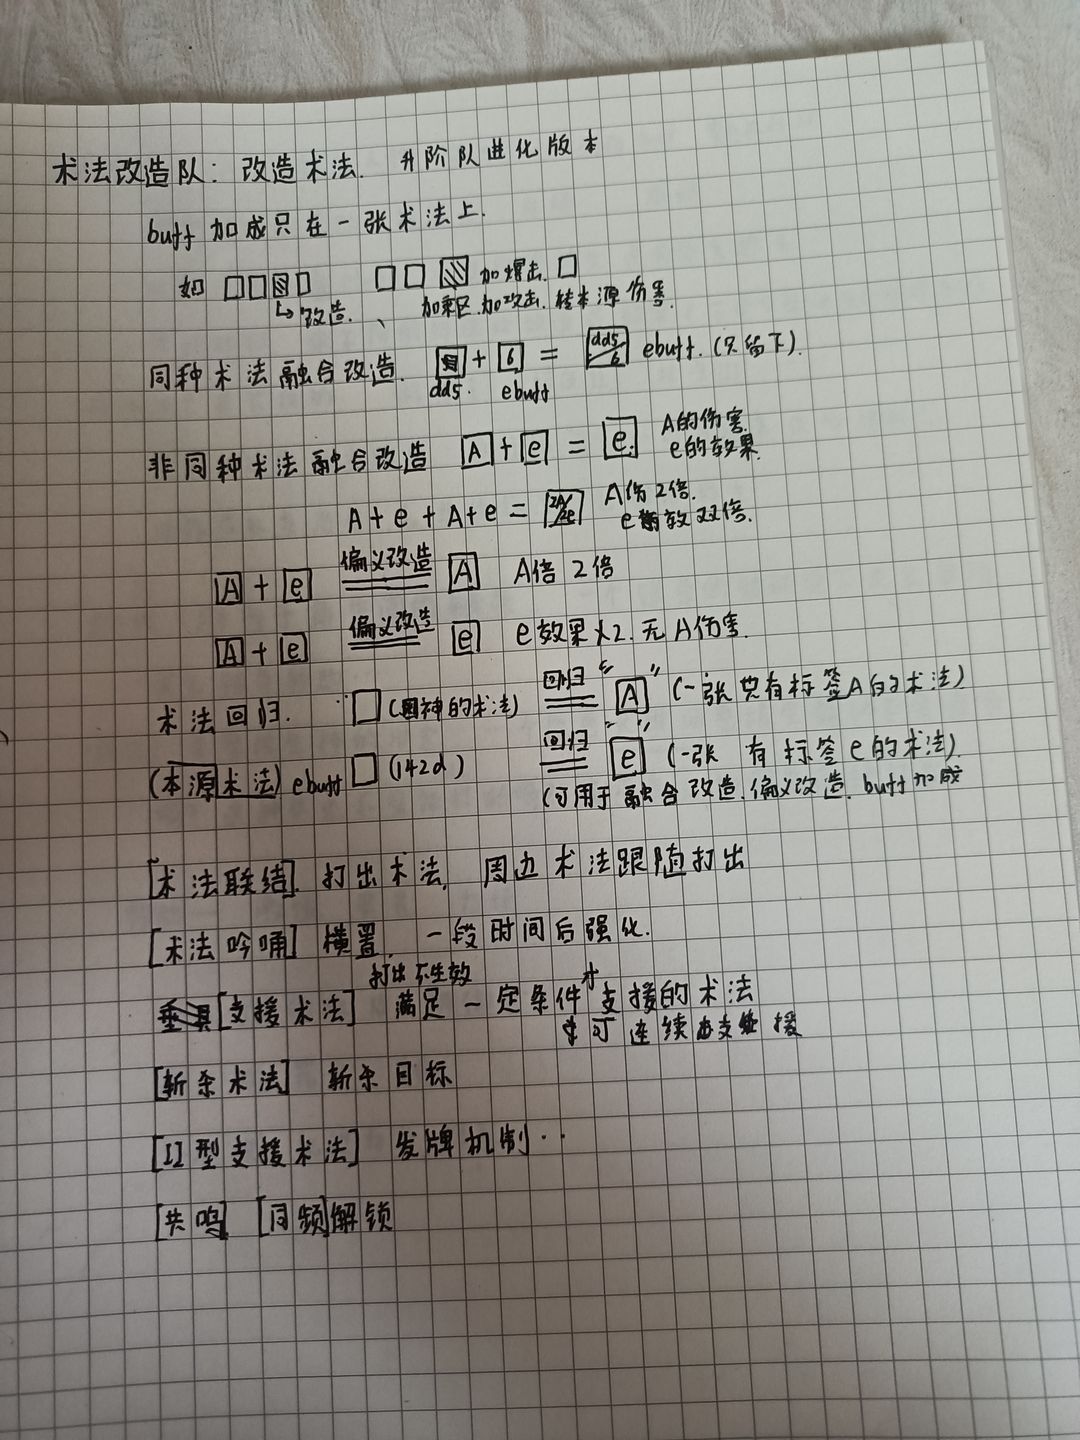 术法改造队：改造术法. 升阶队进化版本
buff 加成只在一张术法上.
如 加爆击.
改造. 、 加乘区.加攻击.转本源伤害.
同种术法融合改造. + 6 = dd5/6 ebuff.(只留下).
dd5. ebuff
非同种术法融合改造 A + e = e. A的伤害.
e的效果.
A + e + A + e = 2A/2e A伤2倍.
e 效双倍.
A + e 偏义改造 A A倍 2倍
A + e 偏义改造 e e效果×2.无A伤害.
术法回归. (的术法) 回归 "A" (一张只有标签A的术法)
(本源术法) ebuff (142d) 回归 "e" (一张 有标签e的术法)
(可用于融合改造.偏义改造. buff加成
[术法联结]. 打出术法, 周边术法跟随打出
[术法吟唱] 横置. 一段时间后强化.
打出不生效
[支援术法] 满足一定条件才支援的术法
可连续支援
[斩杀术法] 斩杀目标
[II型支援术法] 发牌机制··
[共鸣] [同频]解锁